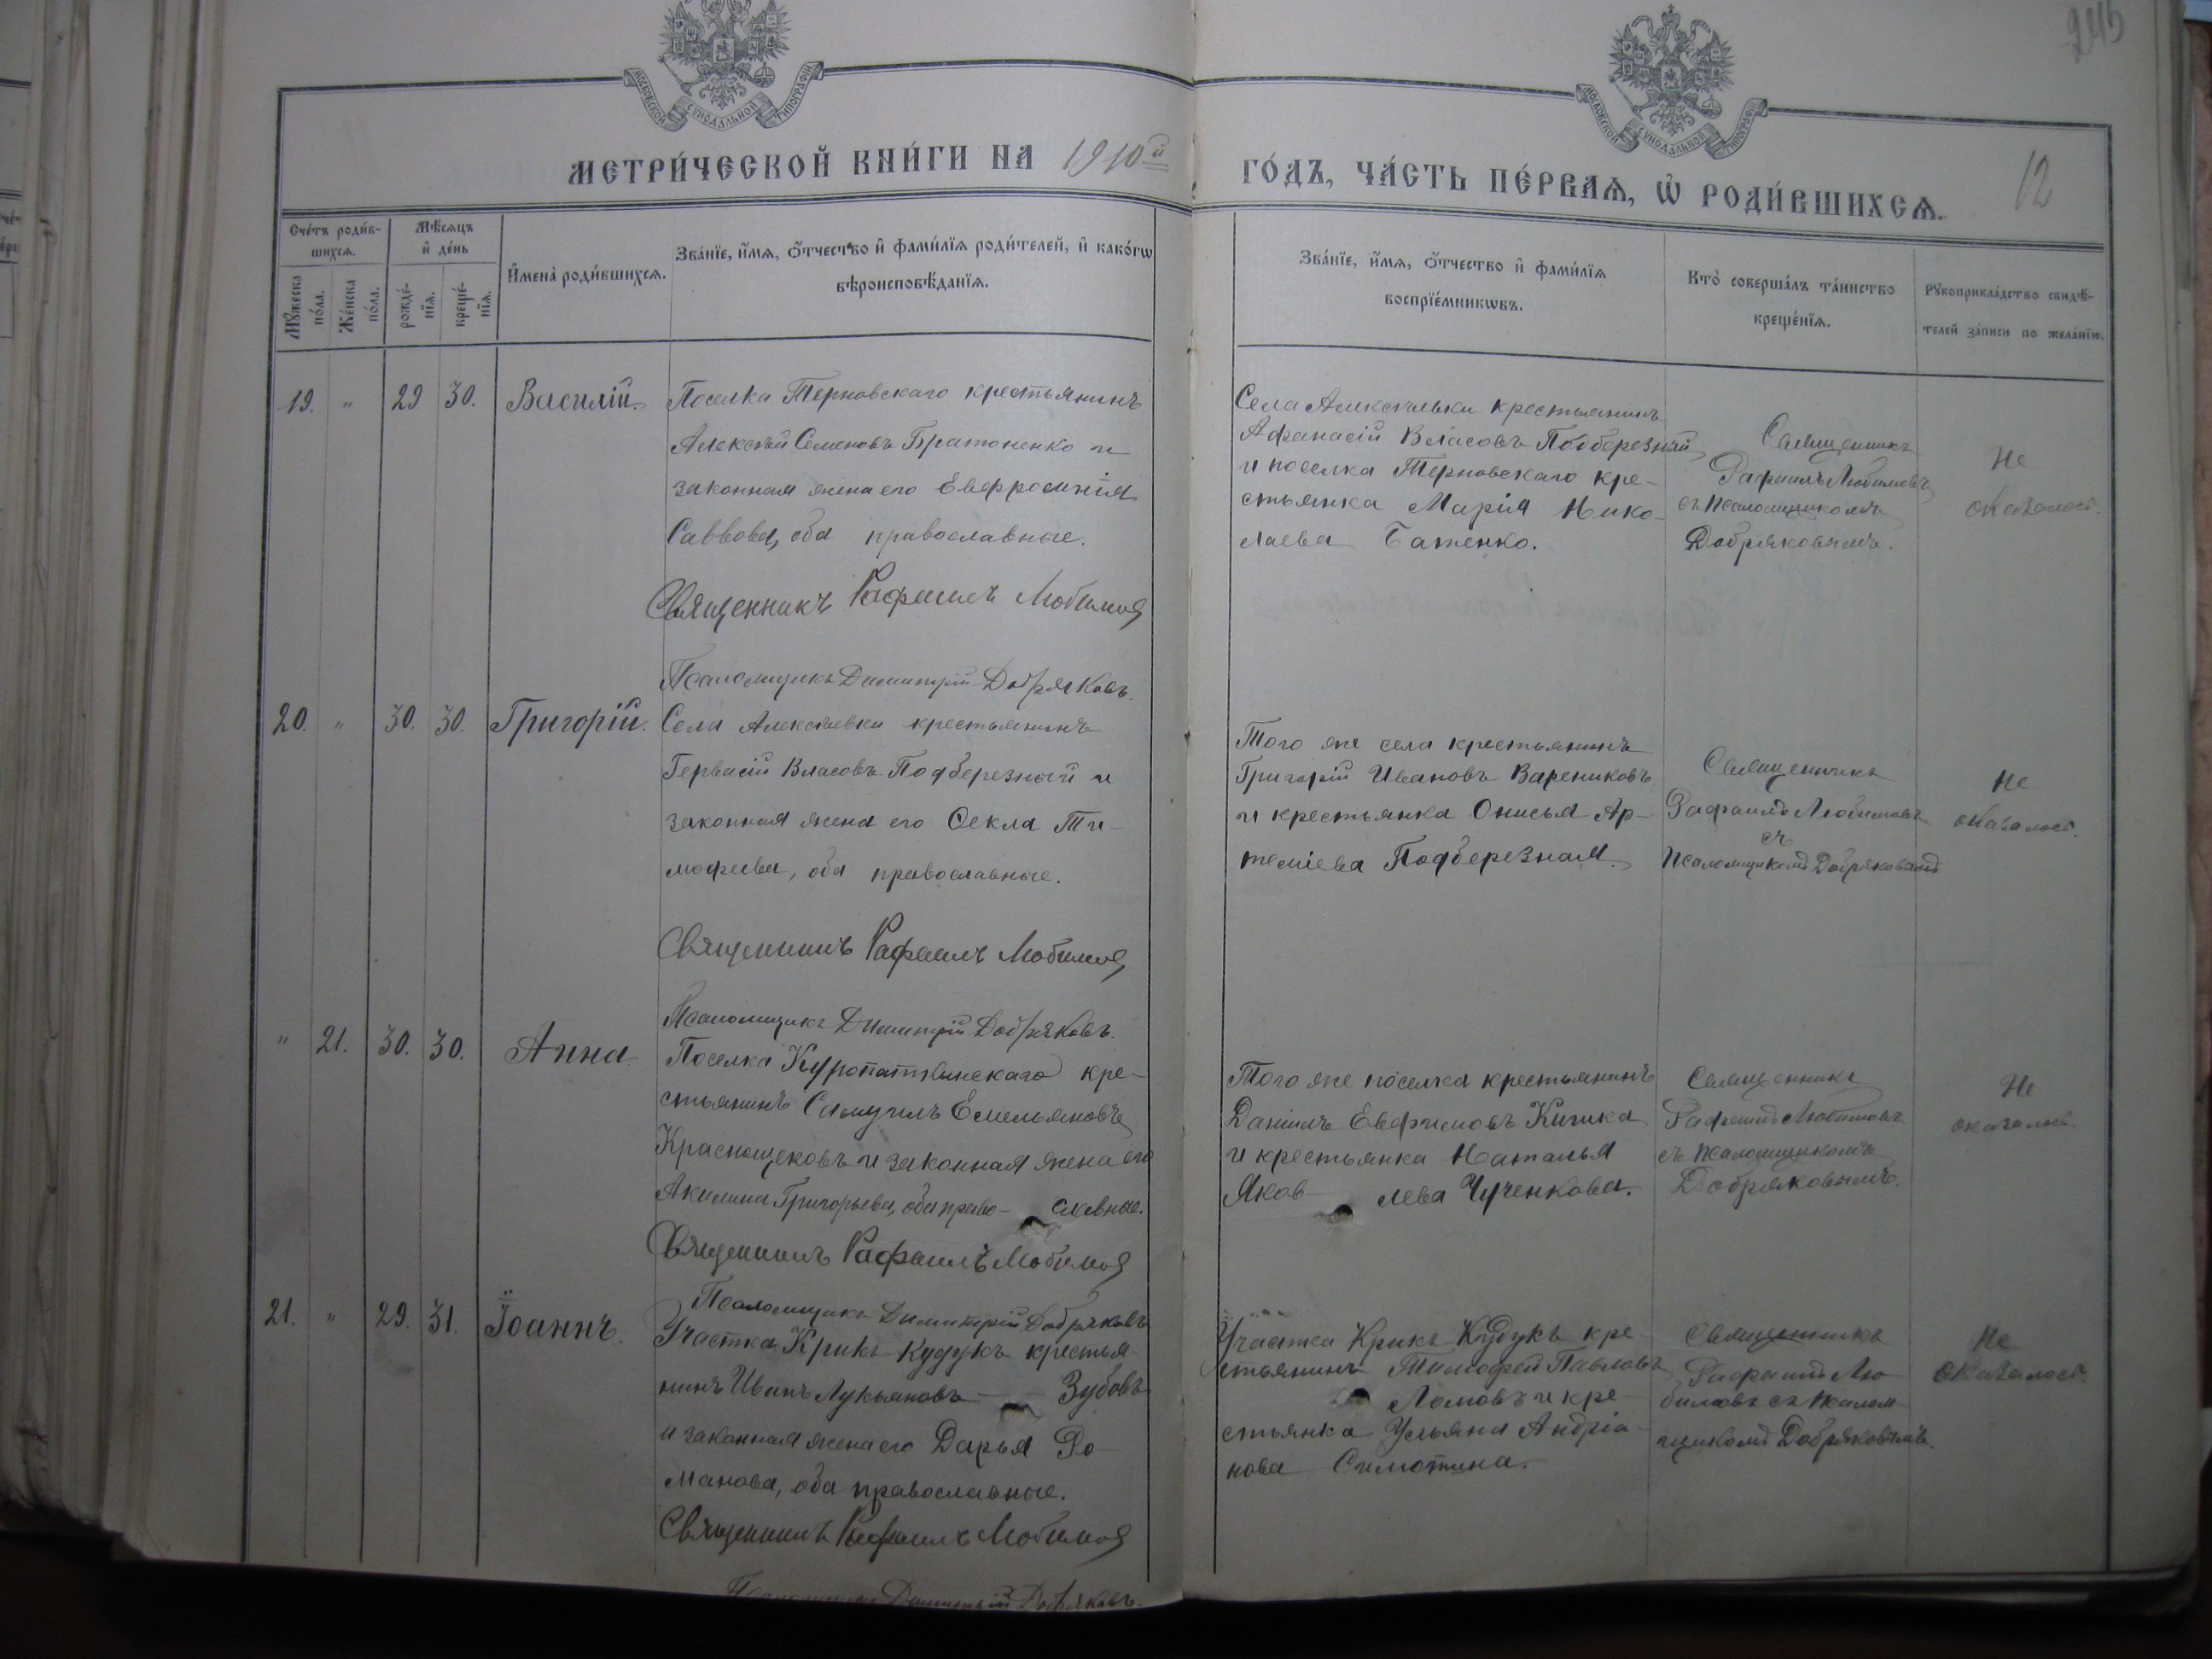 245
МОСКОВСКОЙ СѴНОДАЛЬНОЙ ТИПОГРАФІИ
МОСКОВСКОЙ СѴНОДАЛЬНОЙ ТИПОГРАФІИ
МЕТРИ́ЧЕСКОЙ КНИ́ГИ НА 1910й ГО́ДЪ, ЧА́СТЬ ПЕ́РВАѦ, Ѡ҆ РОДИ́ВШИХСѦ.
12
Сче́тъ роди́в-
шихсѧ.
Мꙋ́жеска по́ла.
Же́нска по́ла.
Мѣ́сѧцъ и҆ де́нь
рожде́-нїѧ.
креще́-нїѧ.
И҆мена̀ роди́вшихсѧ.
Зва́нїе, и҆́мѧ, ѻ҆́тчество и҆ фами́лїѧ роди́телей, и҆ како́гѡ
вѣроисповѣ́данїѧ.
Зва́нїе, и҆́мѧ, ѻ҆́тчество и҆ фами́лїѧ
воспрїе́мникѡвъ.
Кто̀ соверша́лъ та́инство
креще́нїѧ.
Рꙋкоприкла́дство свидѣ́-
телей за́писи по жела́нїю.
19. " 29 30. Василій.
Поселка Терновскаго крестьянинъ
Алексѣй Семеновъ Братоненко и
законная жена его Евфросинія
Саввова, оба православные.
Священникъ Рафаилъ Любимов
Псаломщикъ Димитрій Добряковъ.
Села Алексѣевки крестьянинъ
Афанасій Власовъ Подберезный
и поселка Терновскаго кре-
стьянка Марія Нико-
лаева Батенко.
Священникъ
Рафаилъ Любимовъ
съ псаломщикомъ
Добряковымъ.
Не
оказалось.
20. " 30. 30. Григорій.
Села Алексѣевки крестьянинъ
Гервасій Власовъ Подберезный и
законная жена его Ѳекла Ти-
мофеева, оба православные.
Священникъ Рафаилъ Любимов
Псаломщикъ Димитрій Добряковъ.
Того же села крестьянинъ
Григорій Ивановъ Варениковъ
и крестьянка Онисья Ар-
теміева Подберезная.
Священникъ
Рафаилъ Любимовъ
съ
псаломщикомъ Добряковымъ
Не
оказалось.
" 21. 30. 30. Анна.
Поселка Куропаткинскаго кре-
стьянинъ Самуилъ Емельяновъ
Краснощековъ и законная жена его
Акилина Григорьева, оба право- славные.
Священникъ Рафаилъ Любимов
Псаломщикъ Димитрій Добряковъ
Того же поселка крестьянинъ
Даніилъ Евфимовъ Кичка
и крестьянка Наталья
Яков- лева Чученкова.
Священникъ
Рафаилъ Любимовъ
съ псаломщикомъ
Добряковымъ.
Не
оказалось.
21. " 29. 31. Іоаннъ.
Участка Крикъ Кудукъ крестья-
нинъ Иванъ Лукьяновъ — Зубовъ
и законная жена его Дарья Ро-
манова, оба православные.
Священникъ Рафаилъ Любимов
Псаломщикъ Димитрій Добряковъ.
Участка Крикъ Кудукъ кре-
стьянинъ Тимофей Павловъ
Ломовъ и кре-
стьянка Ульяна Андріа-
нова Симотина.
Священникъ
Рафаилъ Лю-
бимовъ съ псалом-
щикомъ Добряковымъ.
Не
оказалось.